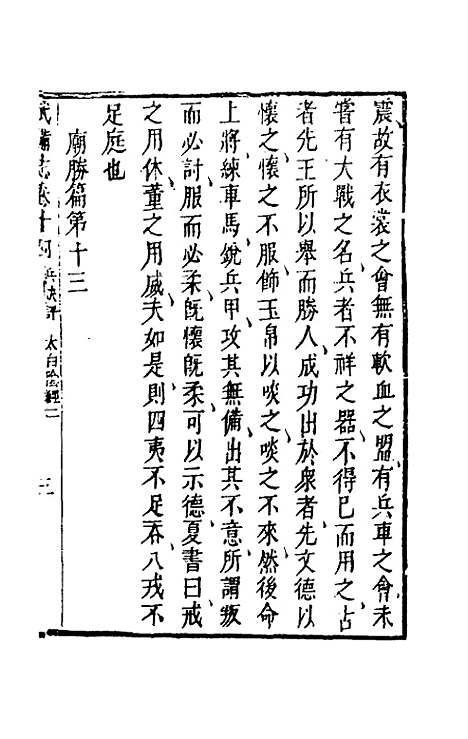 震故有衣裳之會無有軟血之盟有兵車之會未
嘗有大戰之名兵者不祥之器不得已而用之占
者先王所以舉而勝人成功出於衆者先文德以
懷之懷之不服飾玉帛以啖之啖之不來然後命
上將練車馬銳兵甲攻其無備出其不意所謂叛
而必討服而必柔旣懷旣柔可以示德夏書曰戒
之用休董之用威夫如是則四夷不足吞八戎不
足庭也
廟勝篇第十三
武備志卷十四 兵訣評 太白陰經二 三